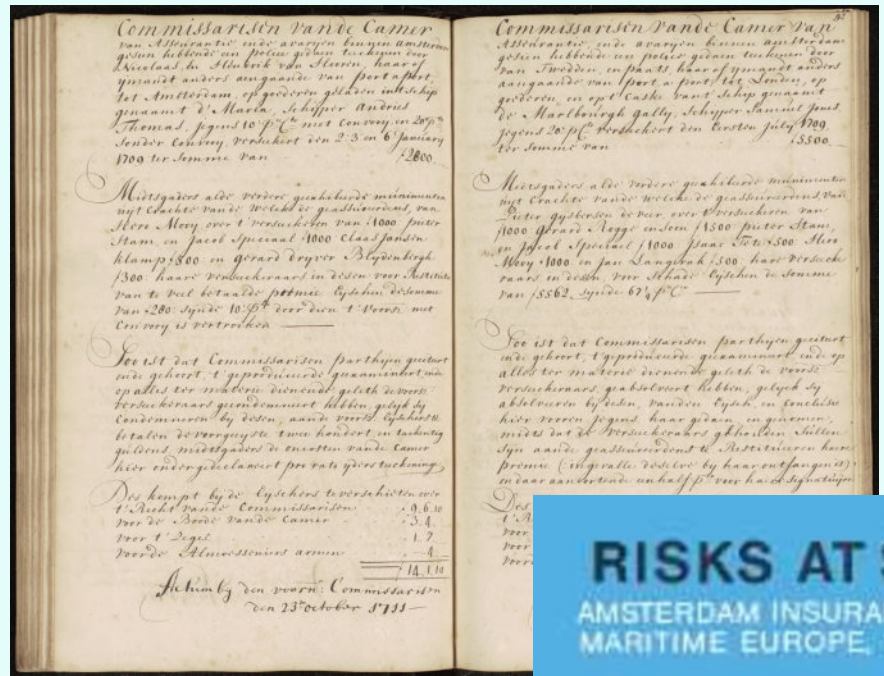 Commissarisen vande Camer
van Assurantie ende avaryen binnen amsterdam
gesien hebbende een police gedaen teekenen door
Nicolaas, en Hendrik van Heuren, haar of
ijmandt anders aengaande van port a port,
tot Amsterdam, op goederen geladen int schip
genaamt d'Maria, Schipper Andries
Thomas, jegens 10 p C met Convoy, en 20 p
Sonder Convoy, verseekert den 2. 3 en 6 January
1709 ter somme van ƒ2800.
Midtsgaders alde verdere geexhibeerde munimenten
uijt Crachte vande welcke de geassureerdens, van
Hero Mooy over t'verseekeren van ƒ1000 pieter
Stam, en Jacob Speciaal ƒ1000 Claas Jansen
klamp ƒ300 en gerard dryver Blydenbergh
ƒ300 haare verseekeraars in desen voor Restitutie
van te veel betaalde premie Eysschen de somme
van ƒ280 synde 10 p door dien t'Voors met
Convoy is vertrocken
Soo ist dat Commissarisen parthijen gesien
ende gehoort, t'geproduceerde geexamineert ende
op alles ter materie dienende geleth de voors
verseekeraars gecondemneert hebben, gelijk sy
Condemneren by desen, aande voors Eysschers te
betalen de voorgeeyste twee hondert, en tachentig
guldens, midtsgaders de oncosten vande Camer
hier onder gedeclareert pro rato yders teekening
Des kompt by de Eysschers te verschieten over
t'Recht vande Commissarisen 9.6.10
voor de Boode vande Camer 3.4.
voor t'Zegel 1.7
voor de Almoesseniers armen 4
ƒ14.1.10
Actum by den voorn: Commissarisen
den 23 october 1711
Commissarisen vande Camer van
Assurantie, ende avaryen binnen amsterdam
gesien hebbende een police gedaen teekenen door
van Tweddn, en paats, haar of ymandt anders
aengaande van port, a port, tot Londen, op
goederen, en opt Casko vant schip genaamt
de Marlbourgh gally, Schipper Samuel Jones
jegens 20 p C verseekert den Eersten July 1709.
ter somme van ƒ5500
Midtsgaders alde vordere geexhibeerde munimenten
uijt Crachte vande welcke de geassureerdens, van
Pieter gysbersen de veer, over t'verseekeren van
ƒ1000 gerard Rogge en soon ƒ1500 pieter Stam,
en Jacob Speciael ƒ1000 Isaac ƒ500 Hero
Mooy ƒ1000 en Jan Langerak ƒ500 hare verseeke
raars in desen, voor schade Eysschen de somme
van ƒ5562 synde 67¼ p C
Soo ist dat Commissarisen parthijen gesien
ende gehoort, t'geproduceerde geexamineert ende op
alles ter materie dienende geleth de voors
verseekeraars, geabsolveert hebben, gelyck sy
absolveeren by desen, vanden Eysch, en conclusie
hier vooren jegens haar gedaen, en genomen,
midts dat de verseekeraars gehouden sullen
syn aande geassureerdens te Restitueren haere
premie (ingevalle deselve by haar ontfangen is)
Des
t'R
voor
voor
voor
RISKS AT S
AMSTERDAM INSURA
MARITIME EUROPE,